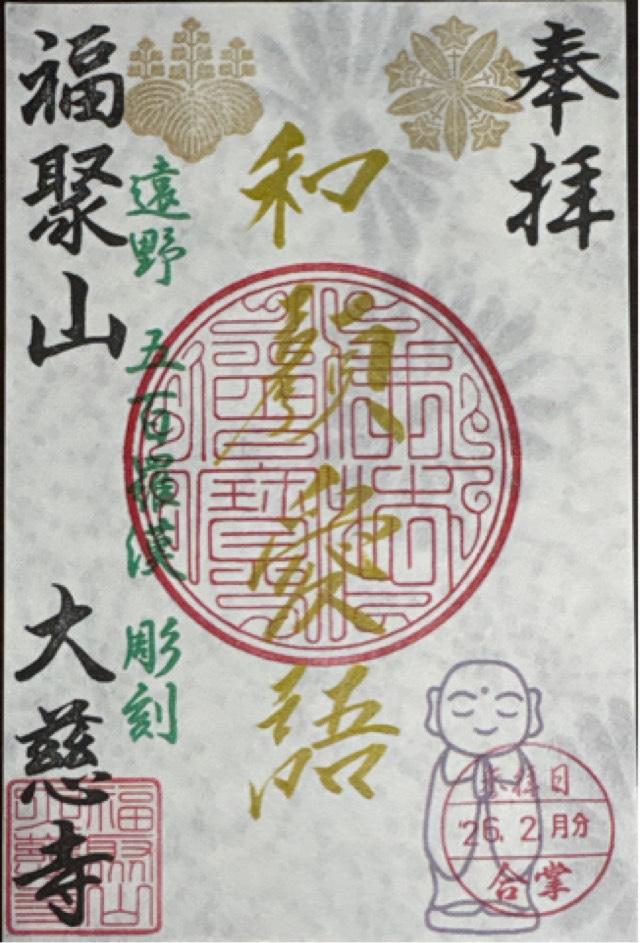 奉拝
和顔愛語
遠野 五百羅漢 彫刻
福聚山 大慈寺
参拝日
'26.2月分
合掌
福聚山